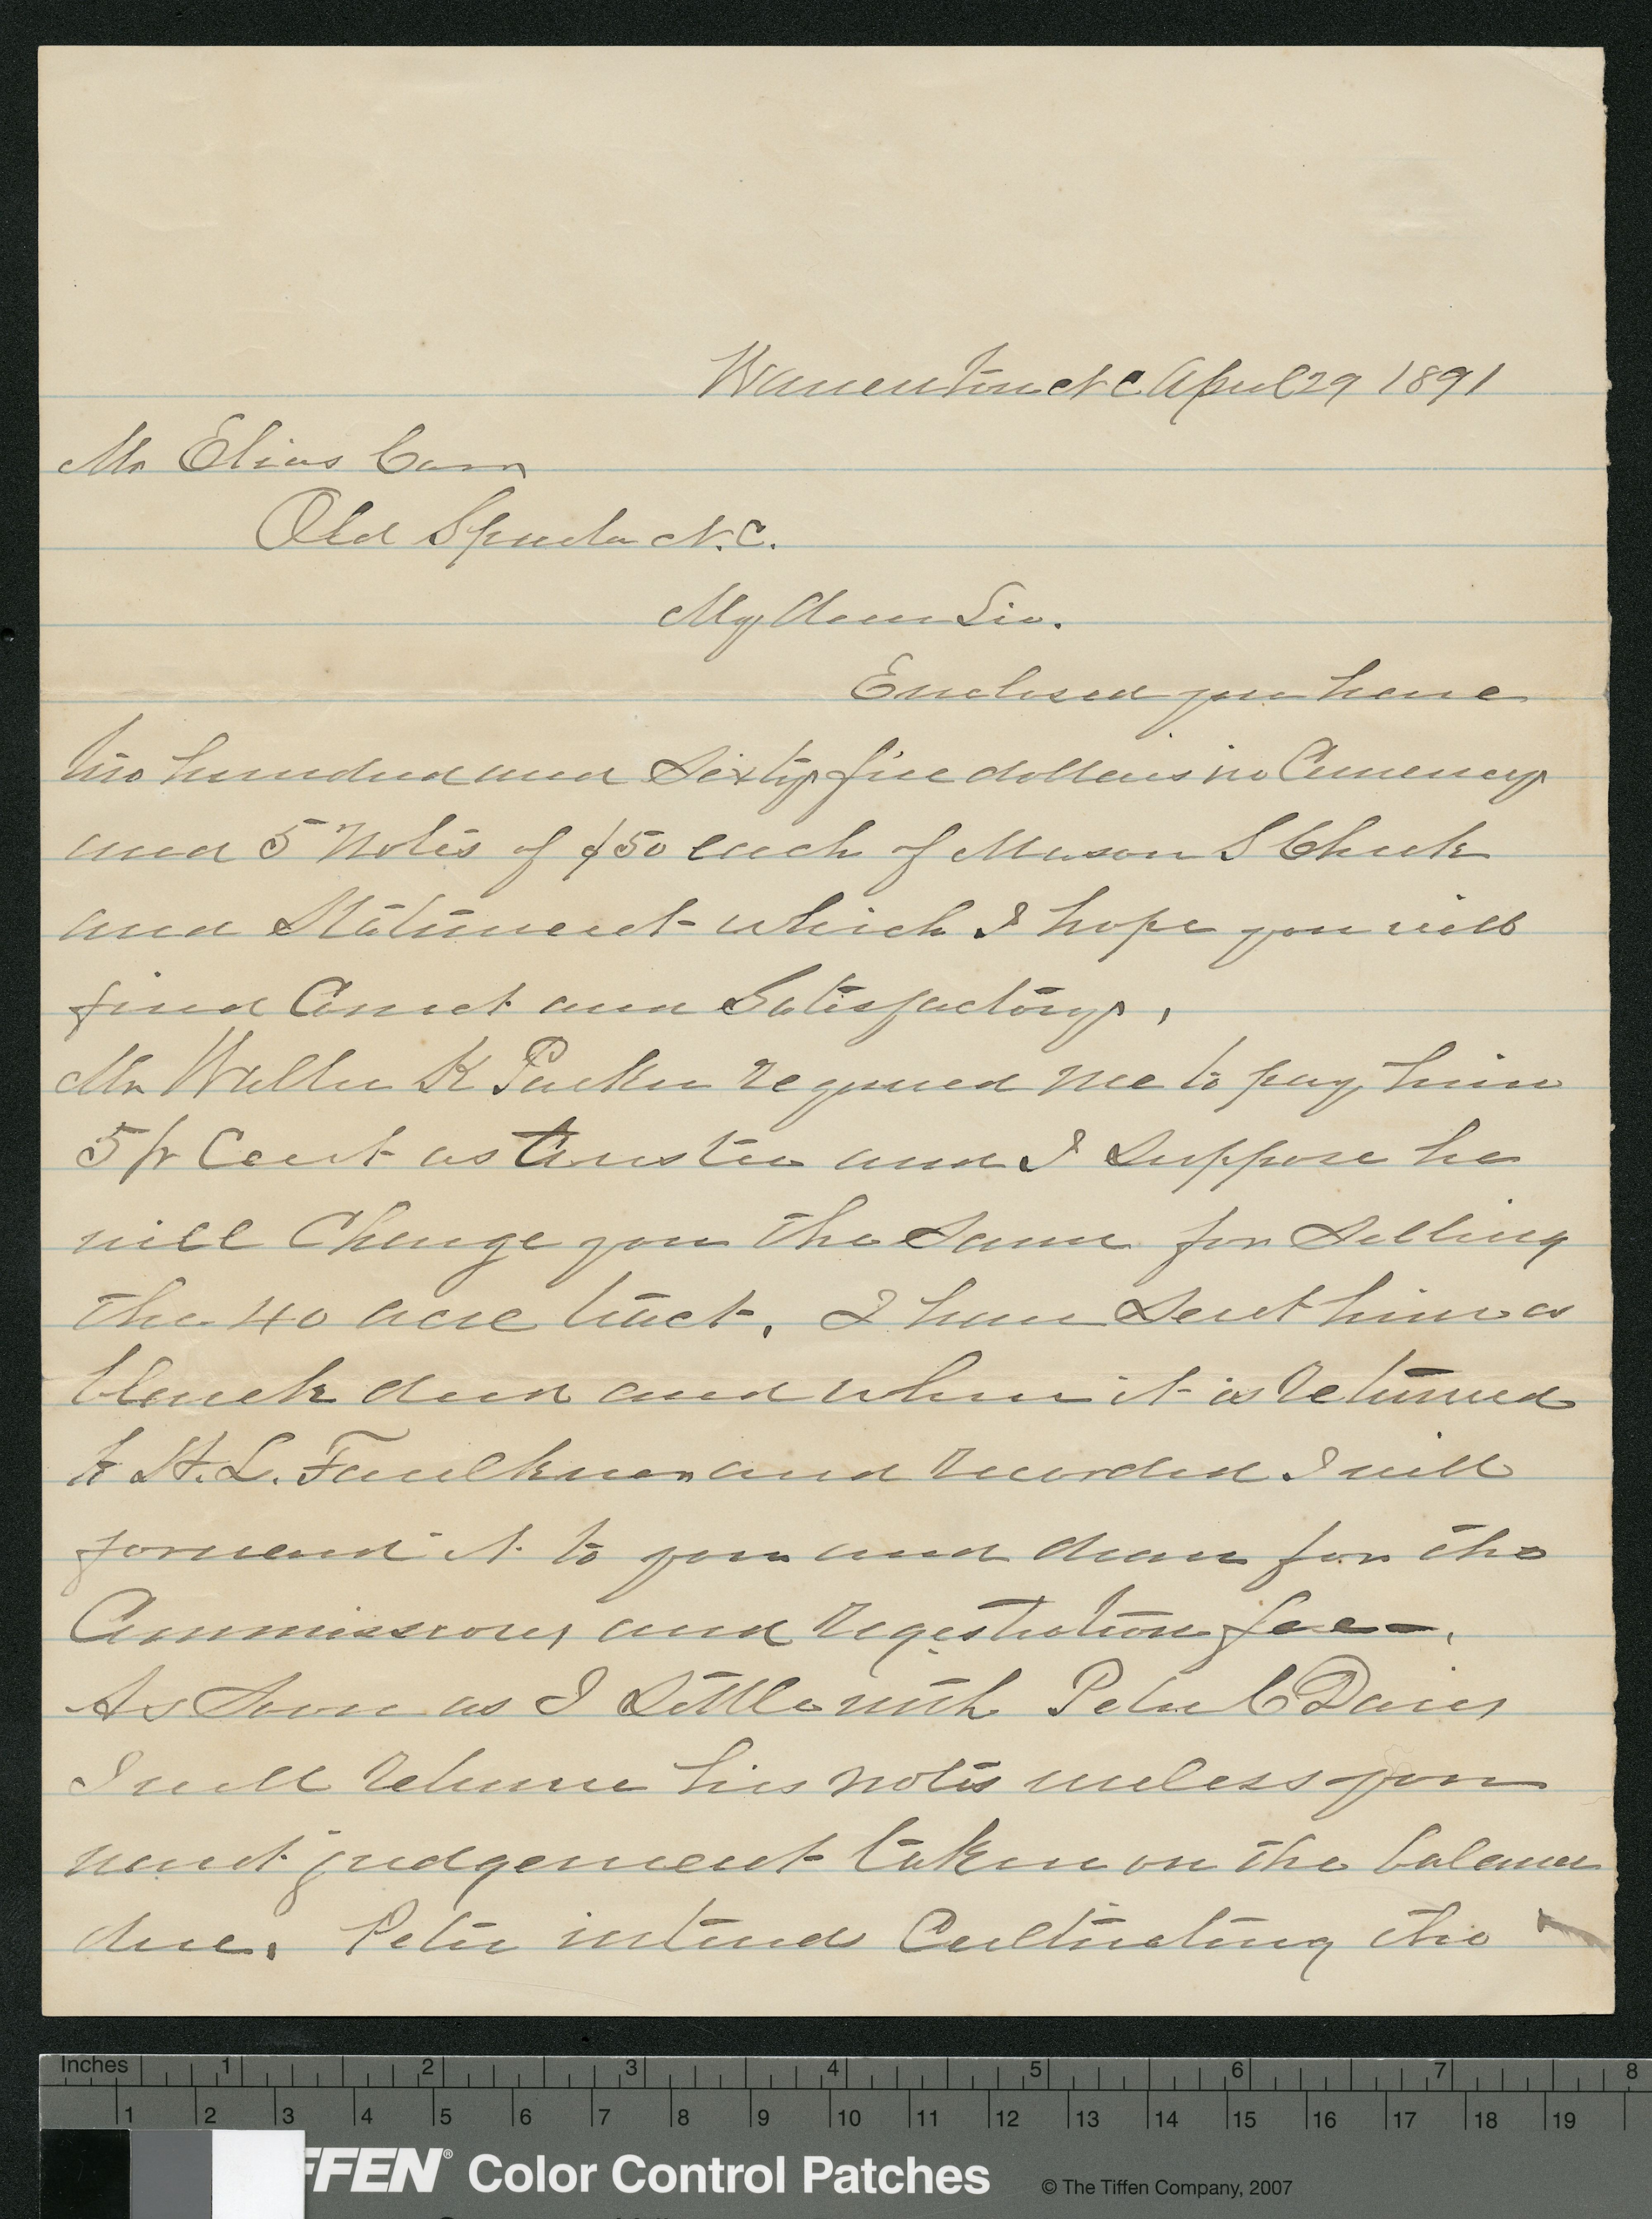 Warrenton N C April 29 1891
Mr Elias Carr
Old Sparta N.C.
My dear Sir.
Enclosed you have
two hundred and Sixty five dollars in Currency
and 5 Notes of $50 each of Mason S Cheek
and Statement which I hope you will
find Correct and Satisfactory,
Mr Walter K Parker required me to pay him
5 pr Cent as Trustee and I Suppose he
will Charge you the Same for Selling
the 40 acre tract. I have Sent him a
blank deed and when it is returned
to H. L. Faulkner and recorded I will
forward it to you and draw for the
Commissions and regestration fee.
As Soon as I Settle with Peter C Davis
I will return his notes unless you
want judgement taken on the balance
due. Peter intends Cultivating the
Inches 1 2 3 4 5 6 7 8
1 2 3 4 5 6 7 8 9 10 11 12 13 14 15 16 17 18 19
FFEN® Color Control Patches © The Tiffen Company, 2007